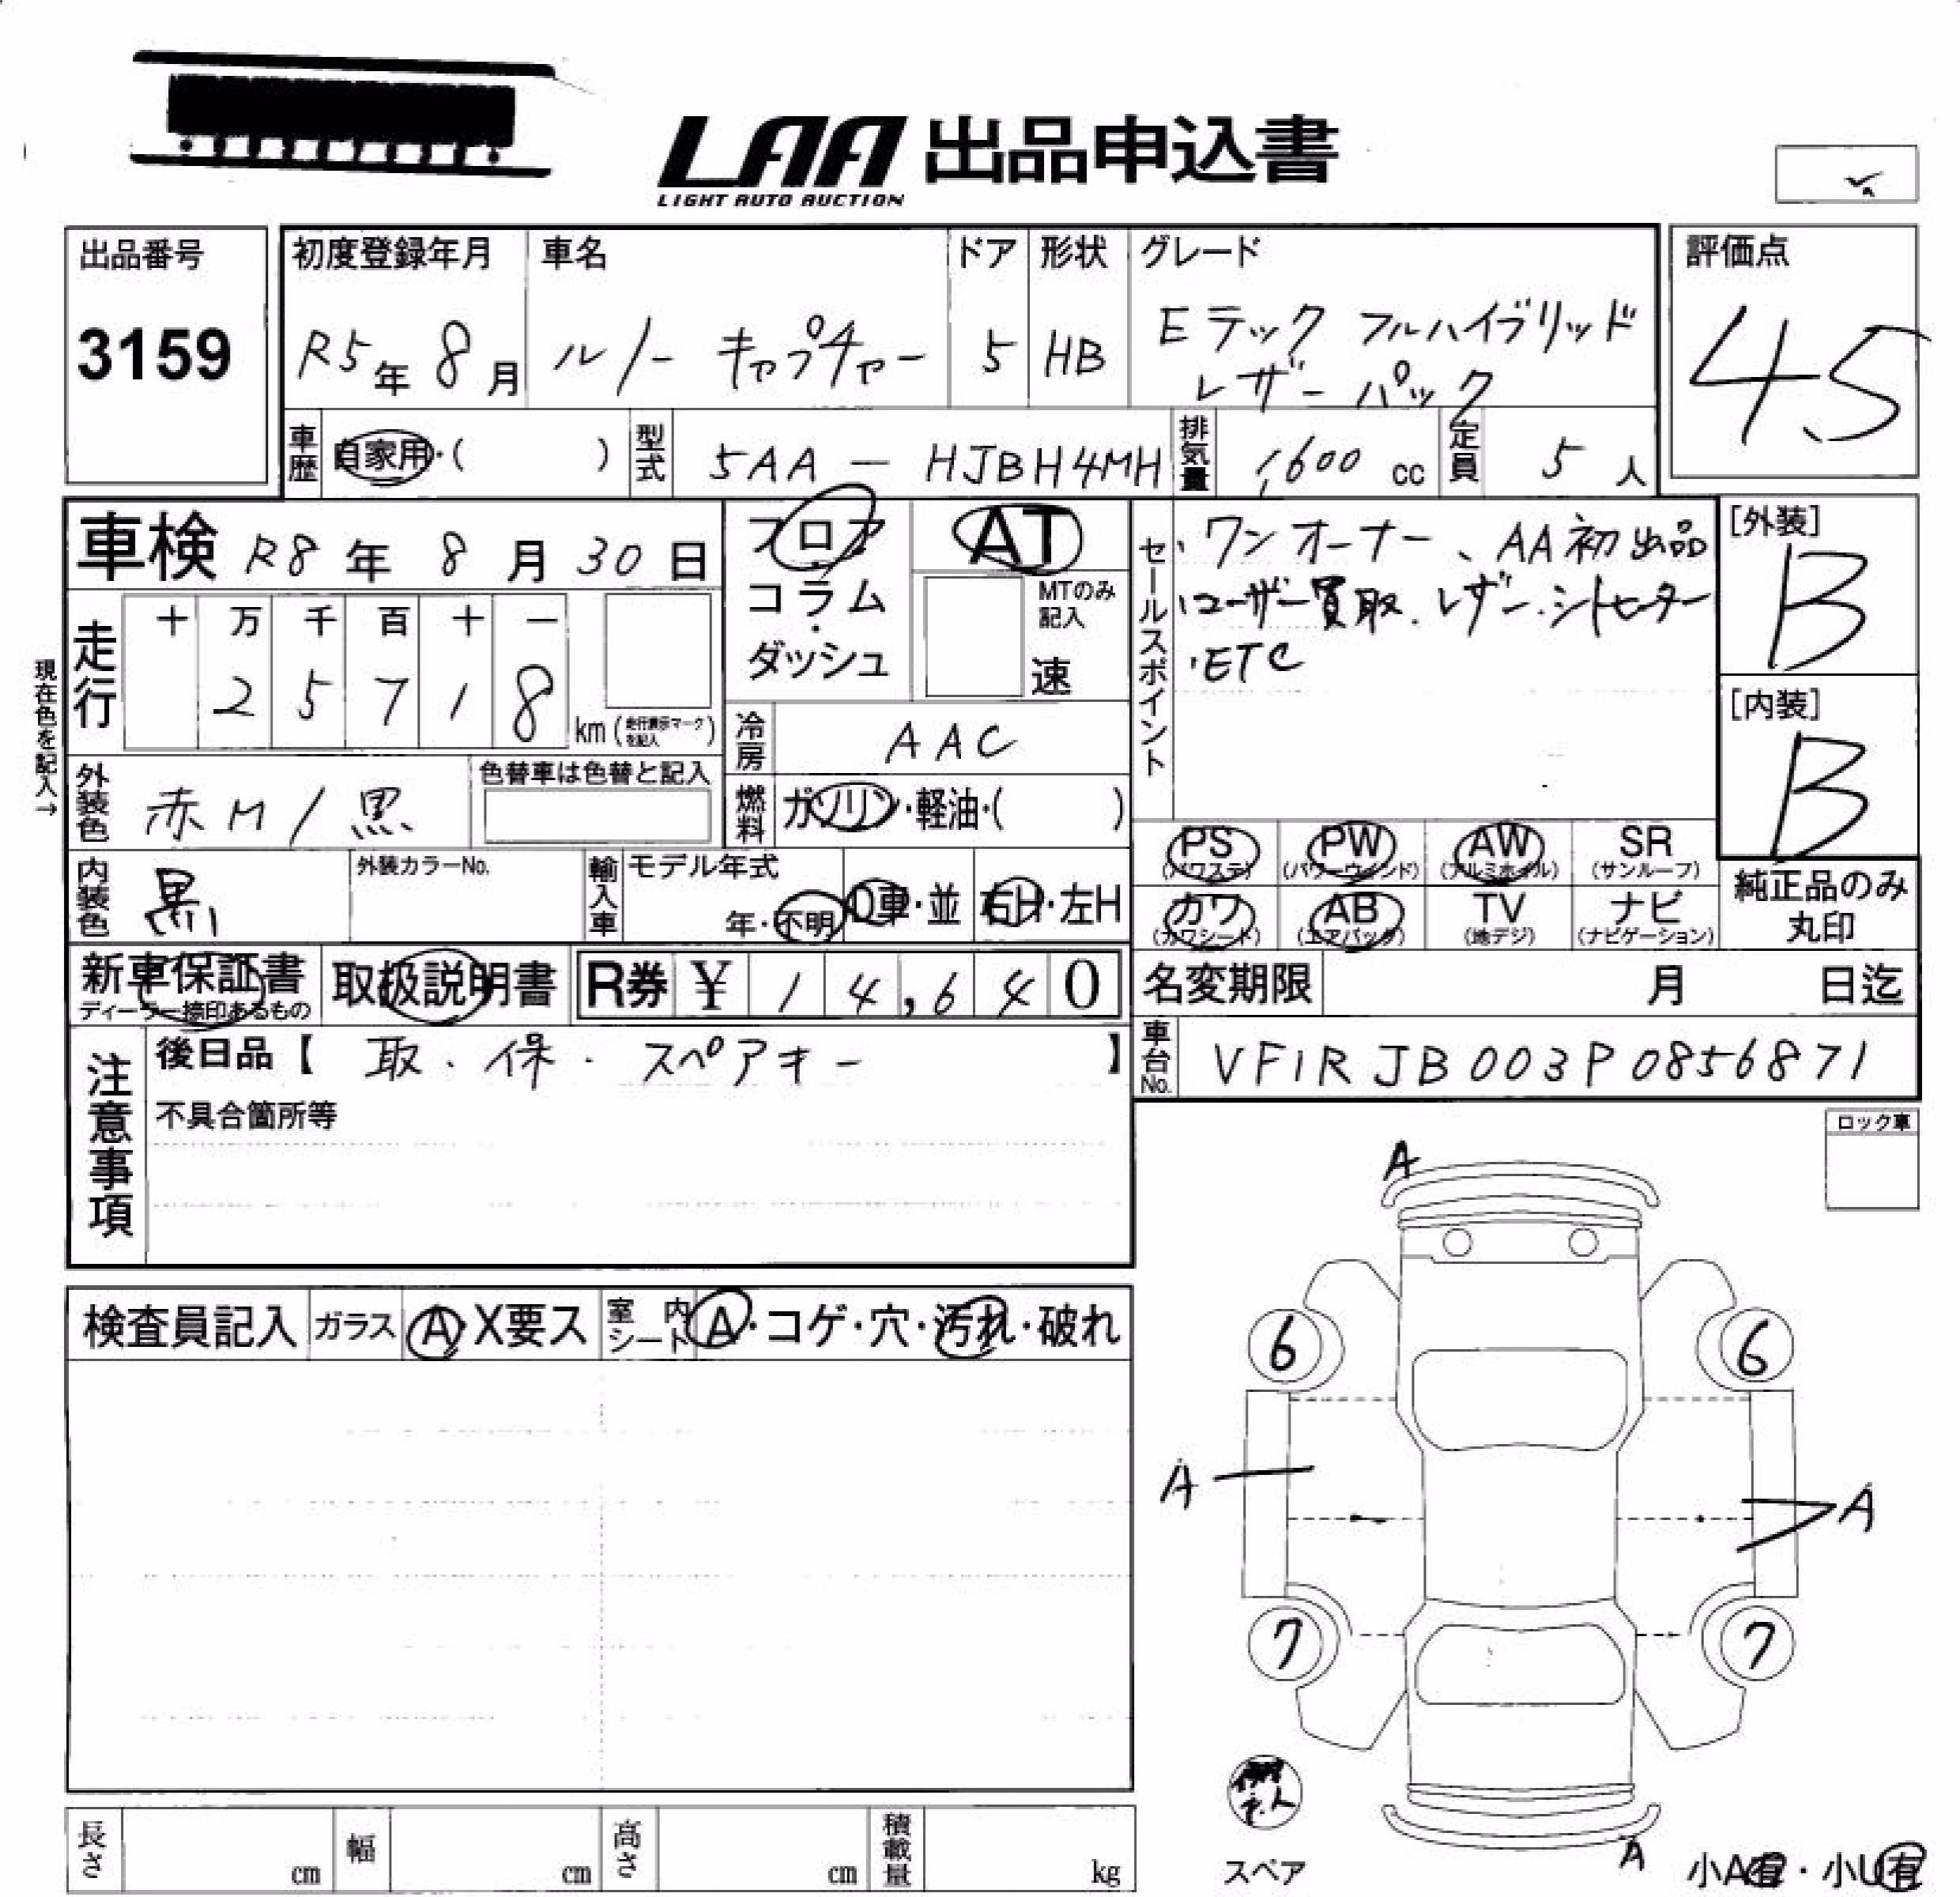 LAA 出品申込書
LIGHT AUTO AUCTION
出品番号
3159
初度登録年月
R5年 8月
車名
ルノー キャプチャー
ドア
5
形状
HB
グレード
Eテック フルハイブリッド
レザーパック
評価点
4.5
車歴 自家用・( )
型式 5AA-HJBH4MH
排気量 1,600 cc
定員 5 人
車検 R8 年 8 月 30 日
フロア
コラム
・
ダッシュ
AT
MTのみ
記入
速
セールスポイント
・ワンオーナー、AA初出品
・ユーザー買取.レザー.シートヒーター
・ETC
[外装]
B
[内装]
B
現在色を記入→
走行
十 万 千 百 十 一
2 5 7 1 8
km (走行表示マークを記入)
冷房 AAC
外装色 赤M/黒
色替車は色替と記入
燃料 ガソリン・軽油・( )
内装色 黒
外装カラーNo.
輸入車
モデル年式
年・不明
D車・並
右H・左H
PS
(パワステ)
PW
(パワーウインド)
AW
(アルミホイル)
SR
(サンルーフ)
カワ
(カワシート)
AB
(エアバッグ)
TV
(地デジ)
ナビ
(ナビゲーション)
純正品のみ
丸印
新車保証書
ディーラー捺印あるもの
取扱説明書
R券 ¥ 14,640
名変期限 月 日迄
車台No. VF1RJB003P0856871
注意事項
後日品【 取・保・スペアキー 】
不具合箇所等
ロック車
検査員記入
ガラス A・X要ス
室内シート A・コゲ・穴・汚れ・破れ
A
6 6
A A
7 7
A
スペア
小A有・小U有
長さ cm
幅 cm
高さ cm
積載量 kg